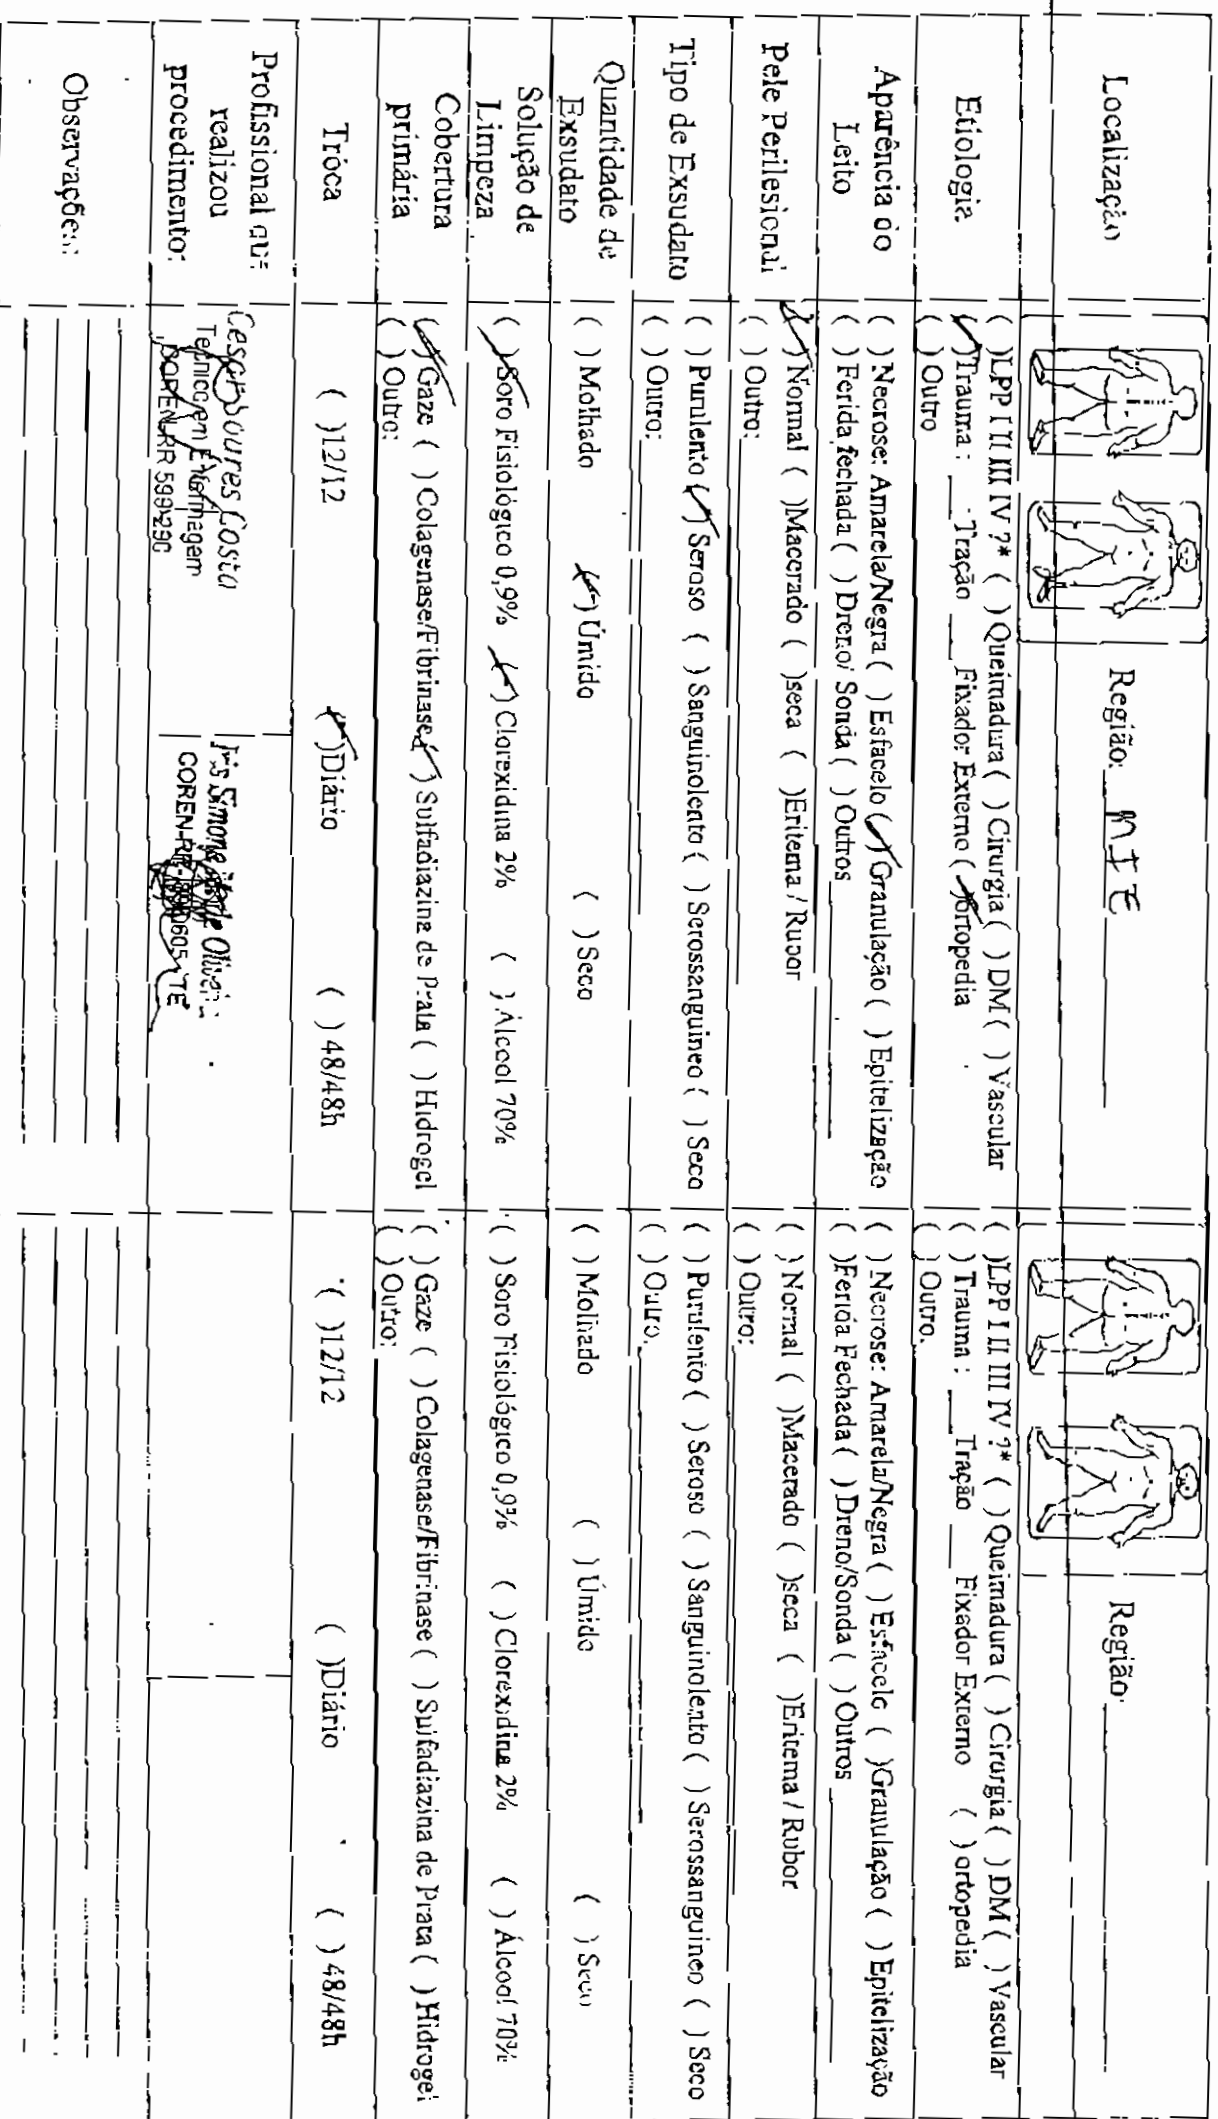 Localização
Região: MIE
Região:
Etiologia
( )LPP I II III IV ?* ( ) Queimadura ( ) Cirurgia ( ) DM ( ) Vascular
(✓)Trauma : ___ Tração ___ Fixador Externo (✓)ortopedia
( ) Outro
( )LPP I II III IV ?* ( ) Queimadura ( ) Cirurgia ( ) DM ( ) Vascular
( ) Trauma : ___ Tração ___ Fixador Externo ( ) ortopedia
( ) Outro.
Aparência do
Leito
( ) Necrose: Amarela/Negra ( ) Esfacelo (✓)Granulação ( ) Epitelização
( ) Ferida fechada ( ) Dreno/ Sonda ( ) Outros
( ) Necrose: Amarela/Negra ( ) Esfacelo ( )Granulação ( ) Epitelização
( )Ferida Fechada ( ) Dreno/Sonda ( ) Outros
Pele Perilesional
(✓)Normal ( )Macerado ( )seca ( )Eritema / Rubor
( ) Outro:
( ) Normal ( )Macerado ( )seca ( )Eritema / Rubor
( ) Outro:
Tipo de Exsudato
( ) Purulento (✓) Seroso ( ) Sanguinolento ( ) Serossanguineo ( ) Seco
( ) Outro:
( ) Purulento ( ) Seroso ( ) Sanguinolento ( ) Serossanguineo ( ) Seco
( ) Outro.
Quantidade de
Exsudato
( ) Molhado (✓) Úmido ( ) Seco
( ) Molhado ( ) Úmido ( ) Seco
Solução de
Limpeza
(✓)Soro Fisiológico 0,9% (✓) Clorexidina 2% ( ) Álcool 70%
( ) Soro Fisiológico 0,9% ( ) Clorexidina 2% ( ) Álcool 70%
Cobertura
primária
(✓)Gaze ( ) Colagenase/Fibrinase (✓) Sulfadiazina de Prata ( ) Hidrogel
( ) Outro:
( ) Gaze ( ) Colagenase/Fibrinase ( ) Sulfadiazina de Prata ( ) Hidrogel
( ) Outro:
Troca
( )12/12 (✓)Diário ( ) 48/48h
( )12/12 ( )Diário ( ) 48/48h
Profissional que
realizou
procedimento:
Soures Costa
Técnico em Enfermagem
COREN-RR 599290
Iris Simone Oliveira
COREN-RR TE
Observações: